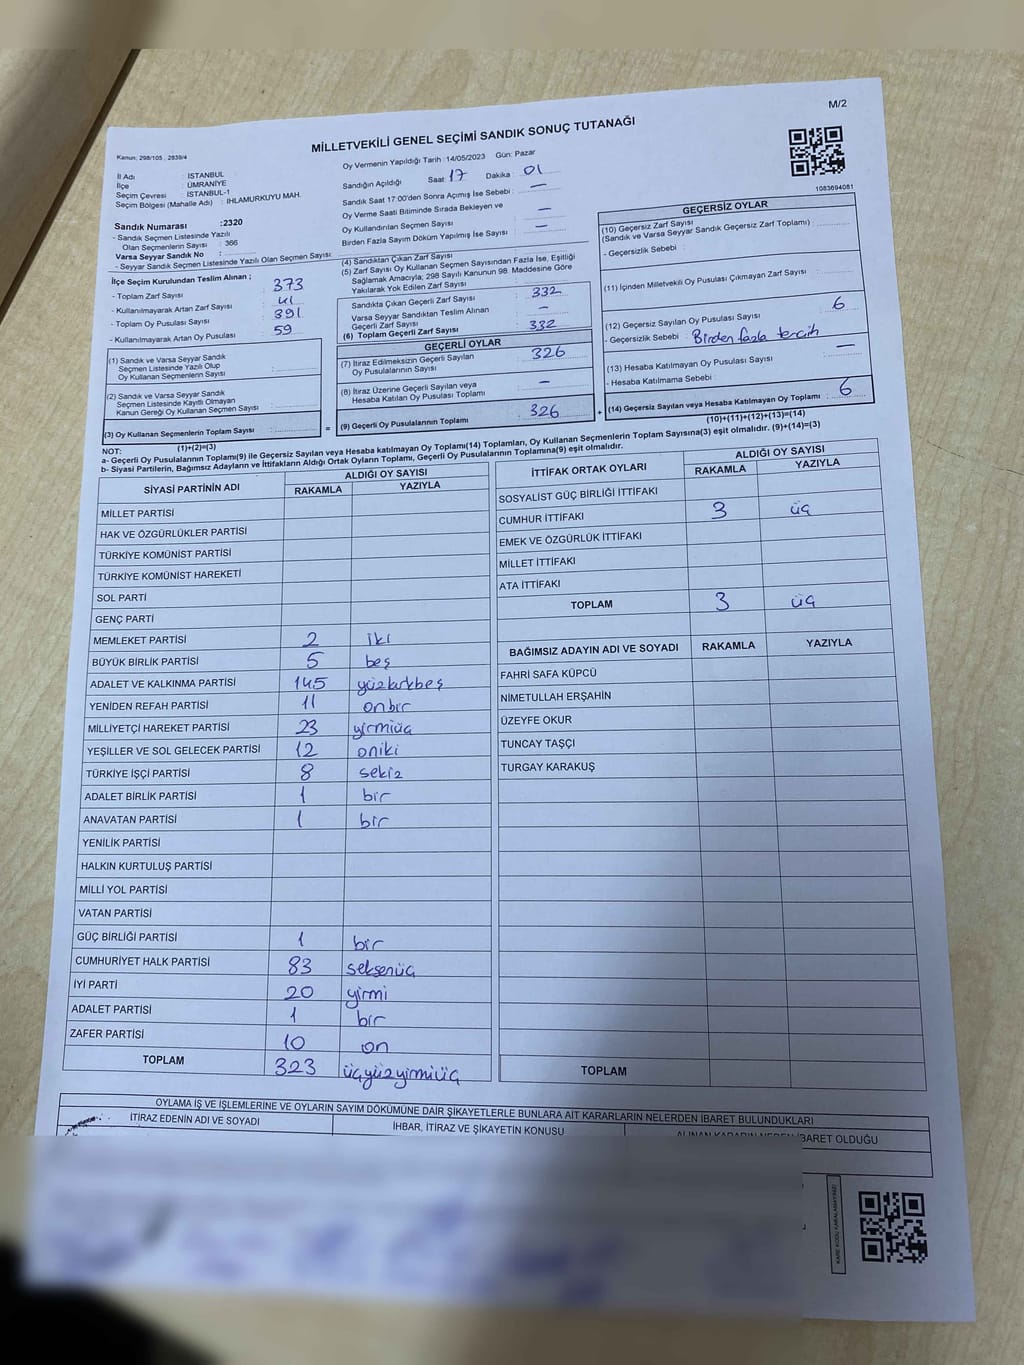 M/2
MİLLETVEKİLİ GENEL SEÇİMİ SANDIK SONUÇ TUTANAĞI
Kanun; 298/105 , 2839/4
Oy Vermenin Yapıldığı Tarih :14/05/2023 Gün: Pazar
İl Adı : İSTANBUL
İlçe : ÜMRANİYE
Seçim Çevresi : İSTANBUL-1
Seçim Bölgesi (Mahalle Adı) : IHLAMURKUYU MAH.
Sandık Numarası :2320
- Sandık Seçmen Listesinde Yazılı
Olan Seçmenlerin Sayısı : 366
Varsa Seyyar Sandık No :
- Seyyar Sandık Seçmen Listesinde Yazılı Olan Seçmen Sayısı:
Sandığın Açıldığı Saat: 17 Dakika : 01
Sandık Saat 17:00'den Sonra Açımış İse Sebebi : —
Oy Verme Saati Bitiminde Sırada Bekleyen ve
Oy Kullandırılan Seçmen Sayısı : —
Birden Fazla Sayım Döküm Yapılmış İse Sayısı : —
1083694081
İlçe Seçim Kurulundan Teslim Alınan ;
- Toplam Zarf Sayısı : 373
- Kullanılmayarak Artan Zarf Sayısı : 41
- Toplam Oy Pusulası Sayısı : 391
- Kullanılmayarak Artan Oy Pusulası : 59
(1) Sandık ve Varsa Seyyar Sandık
Seçmen Listesinde Yazılı Olup
Oy Kullanan Seçmenlerin Sayısı :
(2) Sandık ve Varsa Seyyar Sandık
Seçmen Listesinde Kayıtlı Olmayan
Kanun Gereği Oy Kullanan Seçmen Sayısı :
(3) Oy Kullanan Seçmenlerin Toplam Sayısı :
(1)+(2)=(3)
(4) Sandıktan Çıkan Zarf Sayısı :
(5) Zarf Sayısı Oy Kullanan Seçmen Sayısından Fazla İse, Eşitliği
Sağlamak Amacıyla; 298 Sayılı Kanunun 98. Maddesine Göre
Yakılarak Yok Edilen Zarf Sayısı :
Sandıkta Çıkan Geçerli Zarf Sayısı : 332
Varsa Seyyar Sandıktan Teslim Alınan
Geçerli Zarf Sayısı : —
(6) Toplam Geçerli Zarf Sayısı : 332
GEÇERLİ OYLAR
(7) İtiraz Edilmeksizin Geçerli Sayılan
Oy Pusulalarının Sayısı : 326
(8) İtiraz Üzerine Geçerli Sayılan veya
Hesaba Katılan Oy Pusulası Toplamı : —
= (9) Geçerli Oy Pusulalarının Toplamı : 326
GEÇERSİZ OYLAR
(10) Geçersiz Zarf Sayısı
(Sandık ve Varsa Seyyar Sandık Geçersiz Zarf Toplamı) :
- Geçersizlik Sebebi :
(11) İçinden Milletvekili Oy Pusulası Çıkmayan Zarf Sayısı :
(12) Geçersiz Sayılan Oy Pusulası Sayısı : 6
- Geçersizlik Sebebi : Birden fazla tercih
(13) Hesaba Katılmayan Oy Pusulası Sayısı : —
- Hesaba Katılmama Sebebi :
+ (14) Geçersiz Sayılan veya Hesaba Katılmayan Oy Toplamı : 6
(10)+(11)+(12)+(13)=(14)
NOT:
a- Geçerli Oy Pusulalarının Toplamı(9) ile Geçersiz Sayılan veya Hesaba katılmayan Oy Toplamı(14) Toplamları, Oy Kullanan Seçmenlerin Toplam Sayısına(3) eşit olmalıdır. (9)+(14)=(3)
b- Siyasi Partilerin, Bağımsız Adayların ve İttifakların Aldığı Ortak Oyların Toplamı, Geçerli Oy Pusulalarının Toplamına(9) eşit olmalıdır.
SİYASİ PARTİNİN ADI ALDIĞI OY SAYISI
RAKAMLA YAZIYLA
MİLLET PARTİSİ
HAK VE ÖZGÜRLÜKLER PARTİSİ
TÜRKİYE KOMÜNİST PARTİSİ
TÜRKİYE KOMÜNİST HAREKETİ
SOL PARTİ
GENÇ PARTİ
MEMLEKET PARTİSİ 2 iki
BÜYÜK BİRLİK PARTİSİ 5 beş
ADALET VE KALKINMA PARTİSİ 145 yüzkırkbeş
YENİDEN REFAH PARTİSİ 11 onbir
MİLLİYETÇİ HAREKET PARTİSİ 23 yirmiüç
YEŞİLLER VE SOL GELECEK PARTİSİ 12 oniki
TÜRKİYE İŞÇİ PARTİSİ 8 sekiz
ADALET BİRLİK PARTİSİ 1 bir
ANAVATAN PARTİSİ 1 bir
YENİLİK PARTİSİ
HALKIN KURTULUŞ PARTİSİ
MİLLİ YOL PARTİSİ
VATAN PARTİSİ
GÜÇ BİRLİĞİ PARTİSİ 1 bir
CUMHURİYET HALK PARTİSİ 83 seksenüç
İYİ PARTİ 20 yirmi
ADALET PARTİSİ 1 bir
ZAFER PARTİSİ 10 on
TOPLAM 323 üçyüzyirmiüç
İTTİFAK ORTAK OYLARI ALDIĞI OY SAYISI
RAKAMLA YAZIYLA
SOSYALİST GÜÇ BİRLİĞİ İTTİFAKI
CUMHUR İTTİFAKI 3 üç
EMEK VE ÖZGÜRLÜK İTTİFAKI
MİLLET İTTİFAKI
ATA İTTİFAKI
TOPLAM 3 üç
BAĞIMSIZ ADAYIN ADI VE SOYADI RAKAMLA YAZIYLA
FAHRİ SAFA KÜPCÜ
NİMETULLAH ERŞAHİN
ÜZEYFE OKUR
TUNCAY TAŞÇI
TURGAY KARAKUŞ
TOPLAM
OYLAMA İŞ VE İŞLEMLERİNE VE OYLARIN SAYIM DÖKÜMÜNE DAİR ŞİKAYETLERLE BUNLARA AİT KARARLARIN NELERDEN İBARET BULUNDUKLARI
İTİRAZ EDENİN ADI VE SOYADI İHBAR, İTİRAZ VE ŞİKAYETİN KONUSU ALINAN KARARIN NEDEN İBARET OLDUĞU
KARE KODU KARALAMAYINIZ!